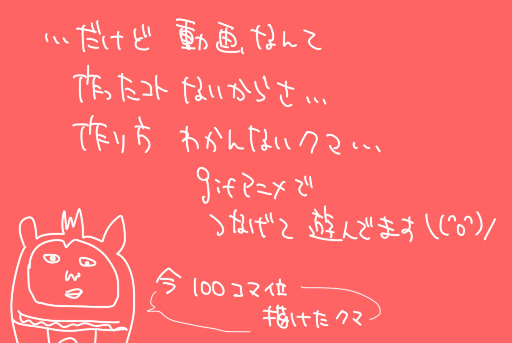 ...だけど 動画なんて
作ったコト ないからさ...
作り方 わかんないクマ...
gifアニメで
つなげて 遊んでます\(^o^)/
今 100コマ位
描けたクマ